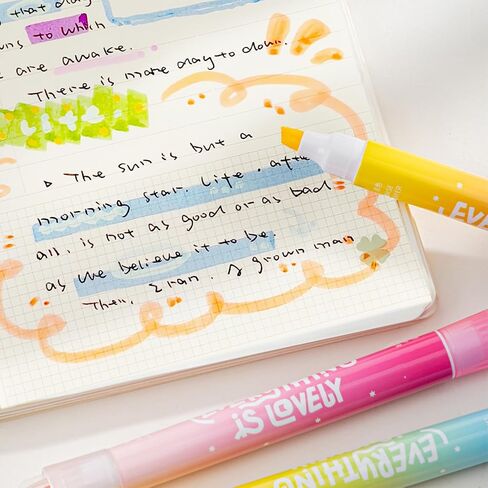 that day
to which
are awake.
There is more day to down.
▷ The sun is but a
morning star. Life, after
all, is not as good or as bad
as we believe it to be.
Then, I ran. A grown man
EVE
EVERYTHING
IS LOVELY
EVERYTHING